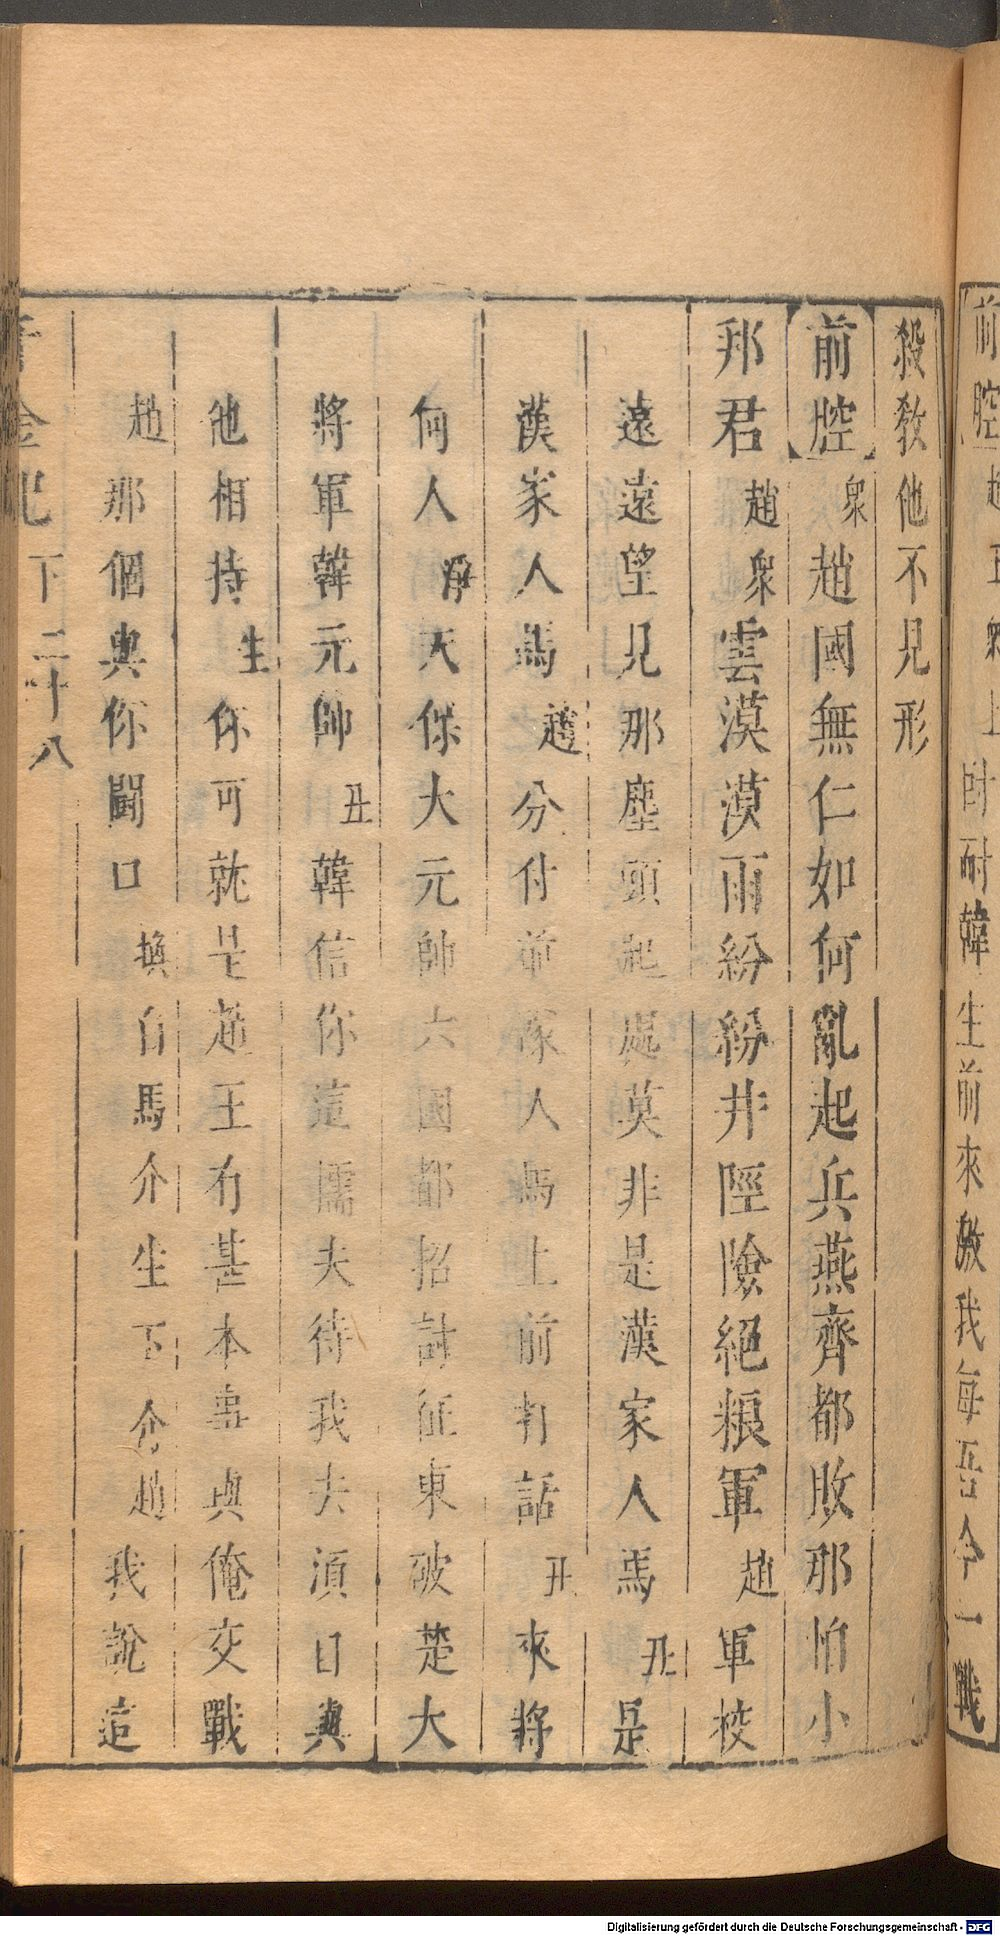 前腔趙丑衆上時耐韓生前來激我每吾今一戰
殺教他不見形
前腔衆趙國無仁如何亂起兵燕齊都敗那怕小
邦君趙衆雲漠漠雨紛紛井陘險絕粮軍趙軍校
遠遠望見那塵頭起處莫非是漢家人馬丑是
漢家人馬趙分付前隊人馬上前打話丑來將
何人淨天保大元帥六國都招討征東破楚大
將軍韓元帥丑韓信你這懦夫待我夫須日與
他相持生你可就是趙王有甚本事與俺交戰
趙那個與你鬪口換白馬介生下介趙我說這
金記 下 二十八
Digitalisierung gefördert durch die Deutsche Forschungsgemeinschaft - DFG